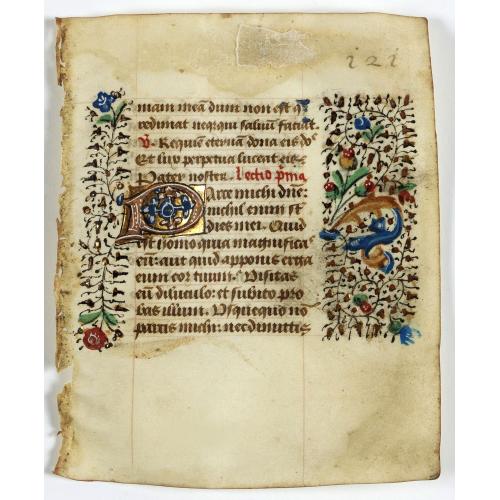 i 2 i
mam meā dum non est q̄
redimat neq̄ qui saluū faciat.
℣. Requiē eternā dona eis dn̄e
Et lux perpetua luceat eis
Pater noster. Lectio p̄ma
Parce michi dn̄e:
nichil enim st̄
dies mei. Quid
est homo quia magnificas
eū: aut quid apponis erga
eum cor tuum. Visitas
eū diluculo: et subito pro
bas illum. Usquequo nō
parcis michi: nec dimittis